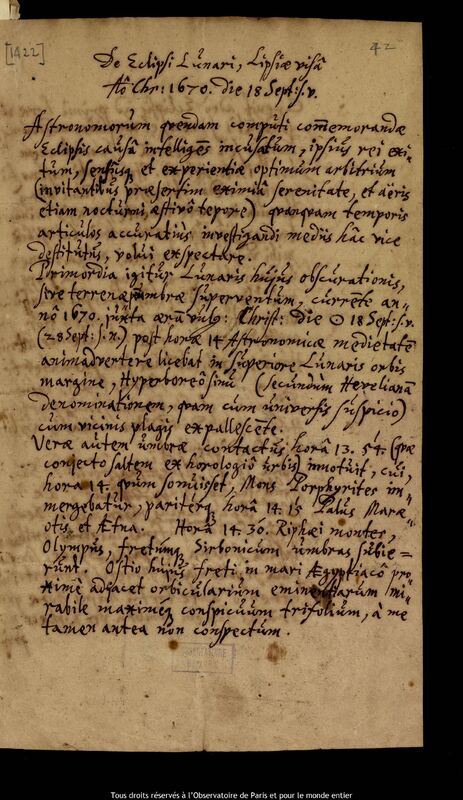 [1422]
42
De Eclipsi Lunari, Lipsiæ visâ
Aõ Chr: 1670. die 18 Sept: s.v.
Astronomorum quendam computi com̃emorandæ
Eclipsis causâ intelligẽs incusatum, ipsius rei exi-
tum, sensusq et experientiæ optimum arbitrium
(invitantibus præsertim eximiâ serenitate, et aëris
etiam nocturni æstivô tepore) quanquam temporis
articulos accuratius investigandi mediis hâc vice
destitutus, volui exspectare.
Primordia igitur Lunaris hujus obscurationis,
sive terrenæ umbræ superventum, currẽte an-
nô 1670. juxta æram vulg: Christ: die ☉ 18 Sept: s.v.
(28 Sept: s.n.) post horæ 14 Astronomicæ medietatẽ
animadvertere licebat in superiore Lunaris orbis
margine, Hyperboreô sinu (secundum Hevelianã
denominationem, quam cum universis suspicio)
cum vicinis plagis expallescete.
Veræ autem umbræ contactus horâ 13. 54. (quæ
conjecto saltem ex horologiô urbis) innotuit, cui,
hora 14. quum sonuisset, Mons Porphyrites im-
mergebatur, pariterq horâ 14. 15 Palus Maræ-
otis et Ætna. Horâ 14. 30. Riphæi montes,
Olympus, fretumq Sirbonicum umbras subie-
runt. Ostio hujus freti in mari Ægyptiacô pro-
ximè adjacet orbicularium eminentiarum mi-
rabile maximeq conspicuum trifolium, à me
tamen antea non conspectum.
OBSERVATOIRE
Tous droits réservés à l'Observatoire de Paris et pour le monde entier